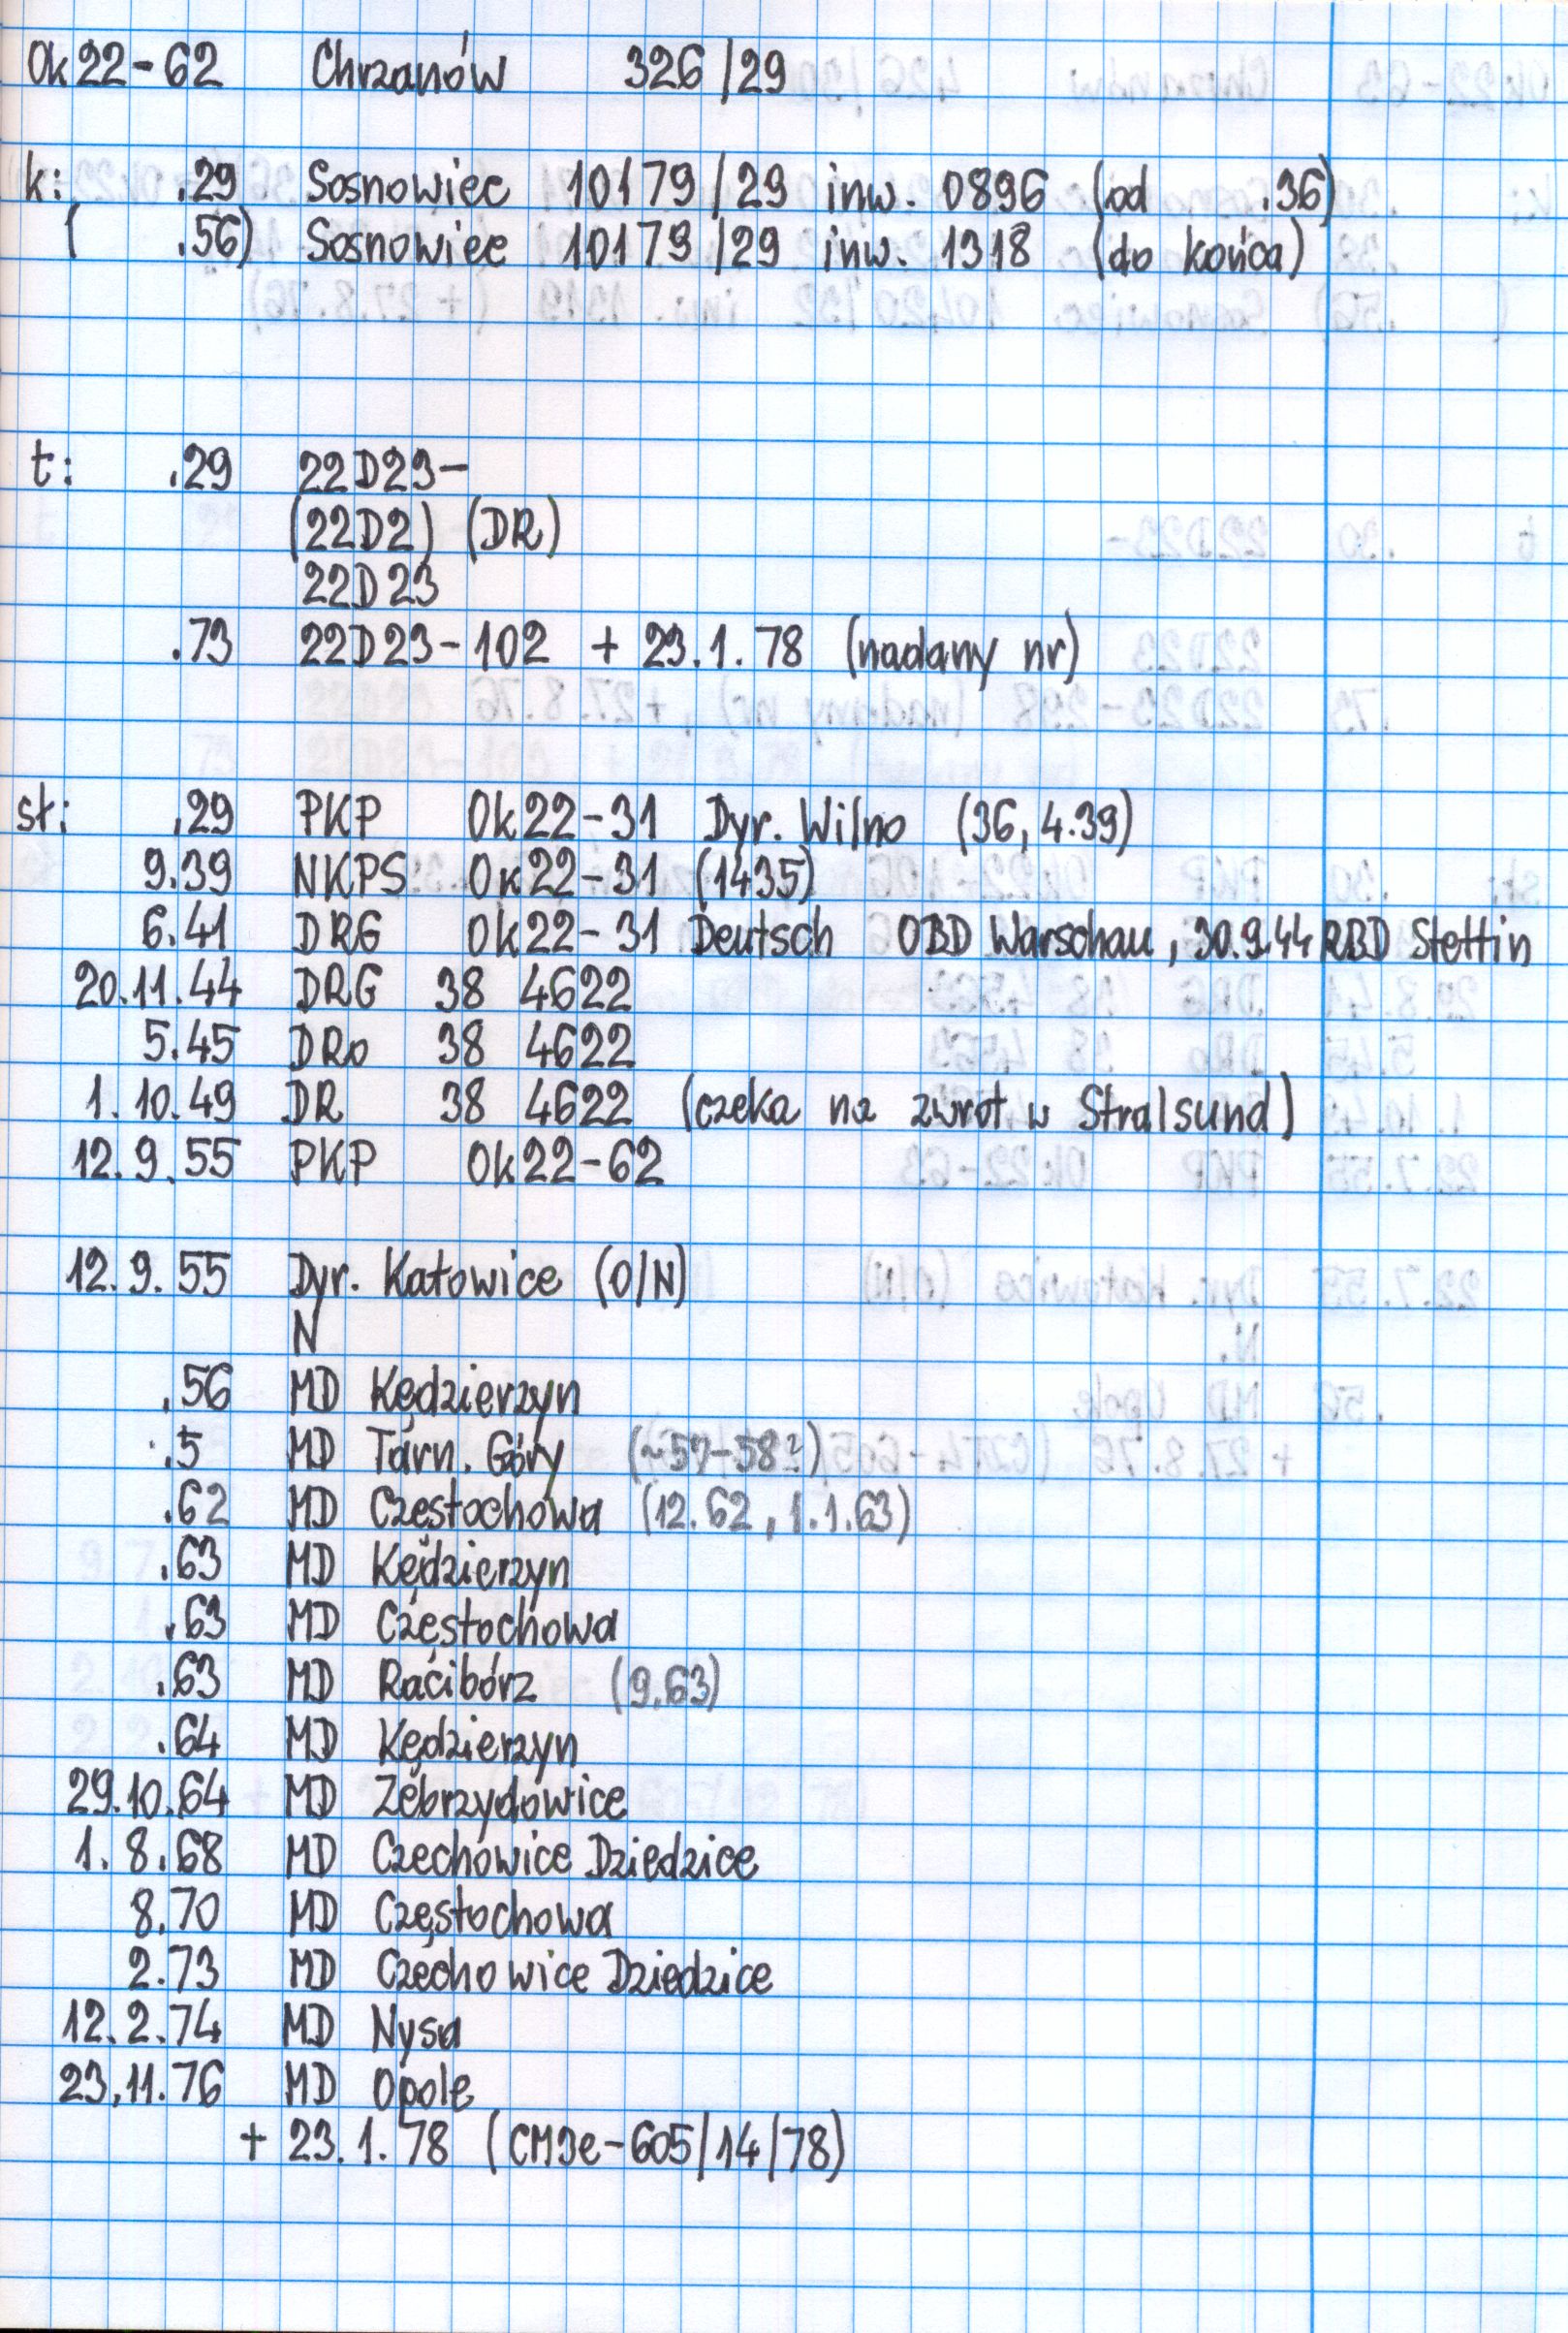 Ok22-62 Chrzanów 326/29
k: .29 Sosnowiec 10179/29 inw. 0896 (od .36)
( .56) Sosnowiec 10179/29 inw. 1318 (do końca)
t: .29 22D23-
(22D2) (DR)
22D23
.73 22D23-102 + 23.1.78 (nadany nr)
sł: .29 PKP Ok22-31 Dyr. Wilno (36, 4.39)
9.39 NKPS Ok22-31 (1435)
6.41 DRG Ok22-31 Deutsch OBD Warschau, 30.9.44 RBD Stettin
20.11.44 DRG 38 4622
5.45 DRo 38 4622
1.10.49 DR 38 4622 (czeka na zwrot w Stralsund)
12.9.55 PKP Ok22-62
12.9.55 Dyr. Katowice (O/N)
N
.56 MD Kędzierzyn
.5 MD Tarn. Góry (~57-58?)
.62 MD Częstochowa (12.62, 1.1.63)
.63 MD Kędzierzyn
.63 MD Częstochowa
.63 MD Racibórz (9.63)
.64 MD Kędzierzyn
29.10.64 MD Zebrzydowice
1.8.68 MD Czechowice Dziedzice
8.70 MD Częstochowa
2.73 MD Czechowice Dziedzice
12.2.74 MD Nysa
23.11.76 MD Opole
+ 23.1.78 (CM3e-605/14/78)